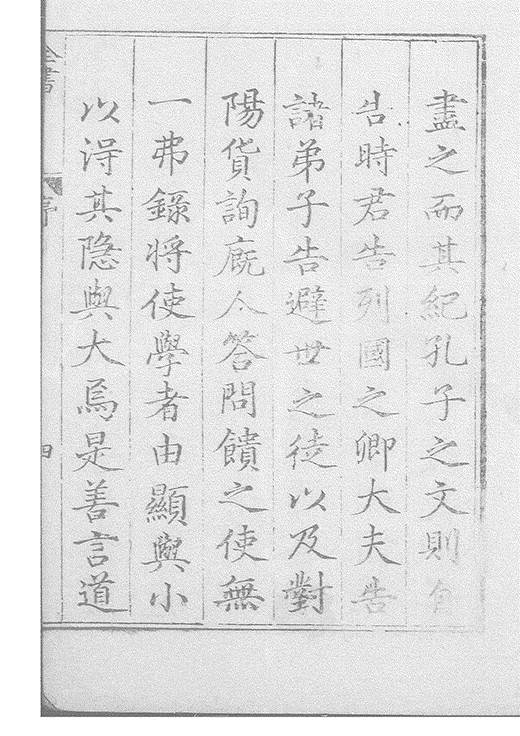 盡之而其紀孔子之文則自
告時君告列國之卿大夫告
諸弟子告避世之徒以及對
陽貨詢廐人答問饋之使無
一弗錄将使學者由顯與小
以淂其隐與大焉是善言道
全書
序
四